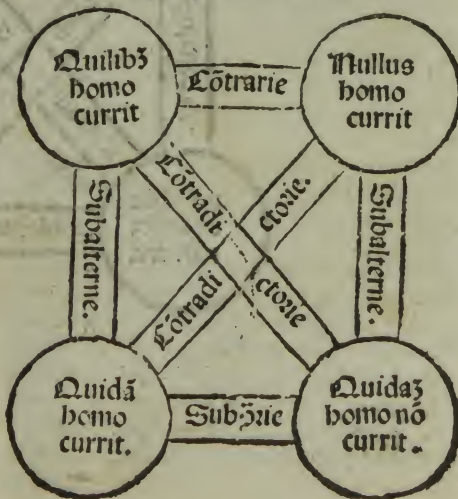 Quilibꝫ
homo
currit
Cõtrarie
Nullus
homo
currit
Subalterne.
Cõtradi
ctorie.
Cõtradi
ctorie
Subalterne.
Quidã
homo
currit.
Subꝫrie
Quidaꝫ
homo nõ
currit.